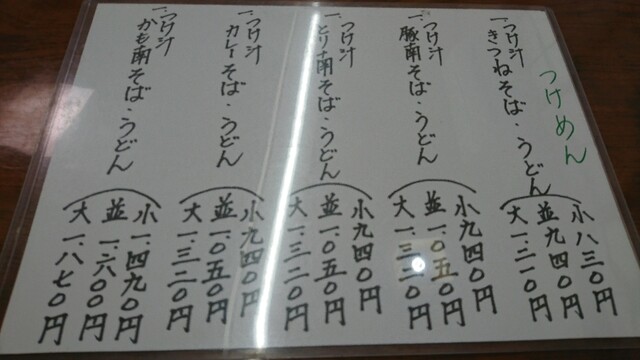 つけめん
一、つけ汁
きつねそば・うどん
小 八三〇円
並 九四〇円
大 一、二一〇円
一、つけ汁
豚南そば・うどん
小 九四〇円
並 一、〇五〇円
大 一、三二〇円
一、つけ汁
とり南そば・うどん
小 九四〇円
並 一、〇五〇円
大 一、三二〇円
一、つけ汁
カレーそば・うどん
小 九四〇円
並 一、〇五〇円
大 一、三二〇円
一、つけ汁
かも南そば・うどん
小 一、四九〇円
並 一、六〇〇円
大 一、八七〇円